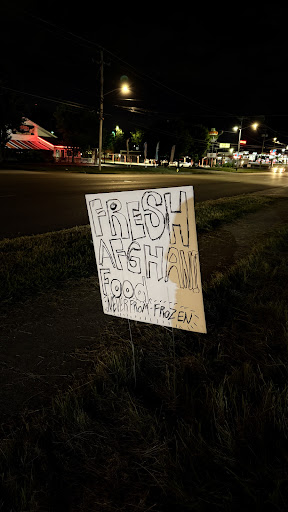 FRESH
AFGHANI
FOOD
NEVER FROM FROZEN